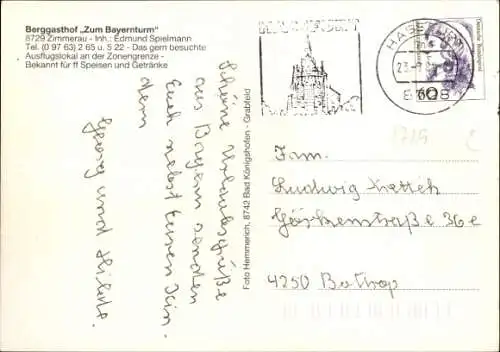 Berggasthof „Zum Bayernturm"
8729 Zimmerau - Inh.: Edmund Spielmann
Tel. (0 97 63) 2 65 u. 5 22 - Das gern besuchte
Ausflugslokal an der Zonengrenze -
Bekannt für ff Speisen und Getränke
Schöne Urlaubsgrüße
aus Bayern senden
Euch nebst Euren Kin-
dern
Georg und Hilde.
Foto Hemmerich, 8742 Bad Königshofen - Grabfeld
Deutsche Bundespost
60
Fam.
Ludwig
Gärtnerstraße 36e
4250 Bottrop